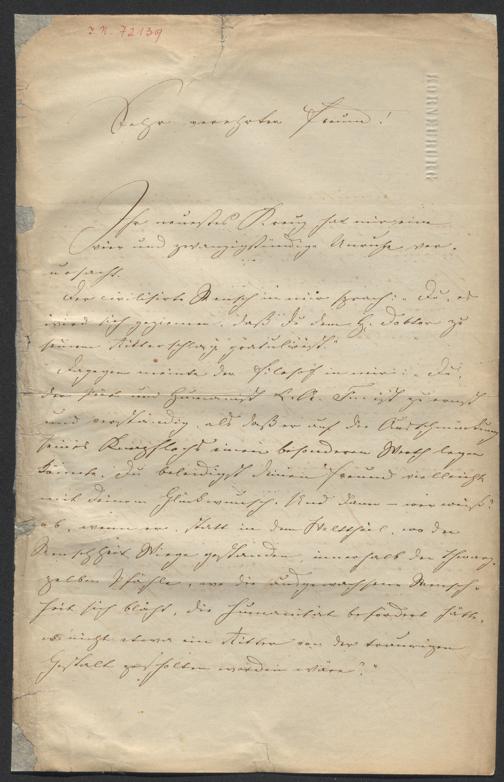 I. N. 72139
KORNEUBURG
Sehr verehrter Freund!
Ihr neuestes Kreuz hat mir eine
vier und zwanzigstündige Unruhe ver-
ursacht.
Der civilisirte Mensch in mir sprach: „Du, es
wird sich geziemen, daß du dem H. Doktor zu
seinem Ritterschlag gratulirest."
Dagegen meinte der Filosof in mir: „Du,
der und Humanist L. A. Frankl ist zu ernst
und verständig, als daß er auf die Ausschmückung
seines Knopflochs einen besonderen Werth legen
könnte. Du beleidigst deinen Freund vielleicht
mit deinem Glückwunsch. Und dann – wer weiß?
ob, wenn er, statt in dem Welttheil, wo der
Menschheit Wiege gestanden, innerhalb der schwarz-
gelben Pfähle, wo die ausgewachsene Mensch-
heit sich bläht, die Humanität befördert hätte,
er nicht etwa ein Ritter von der traurigen
Gestalt gescholten worden wäre?"